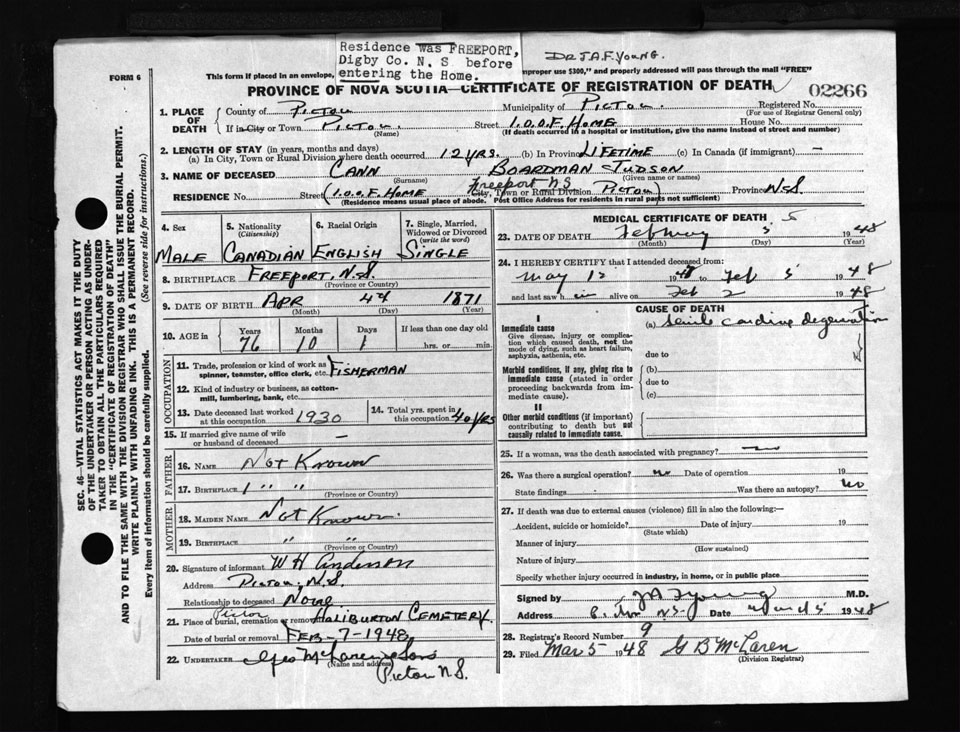 Residence was FREEPORT,
Digby Co. N. S. before
entering the Home.
DR J.A.F. YOUNG.
FORM 6
This form if placed in an envelope,
improper use $300," and properly addressed will pass through the mail "FREE"
PROVINCE OF NOVA SCOTIA—CERTIFICATE OF REGISTRATION OF DEATH
02266
1. PLACE OF DEATH
County of PICTOU
Municipality of PICTOU.
Registered No.
(For use of Registrar General only)
If in City or Town PICTOU.
(Name)
Street I.O.O.F. HOME
House No.
(If death occurred in a hospital or institution, give the name instead of street and number)
2. LENGTH OF STAY (in years, months and days)
(a) In City, Town or Rural Division where death occurred 12 YRS. (b) In Province LIFETIME (c) In Canada (if immigrant) —
3. NAME OF DECEASED CANN BOARDMAN JUDSON
(Surname) (Given name or names)
Freeport NS
RESIDENCE No. Street (I.O.O.F. HOME City, Town or Rural Division PICTOU) Province N.S.
(Residence means usual place of abode. Post Office Address for residents in rural parts not sufficient)
4. Sex
MALE
5. Nationality
(Citizenship)
CANADIAN
6. Racial Origin
ENGLISH
7. Single, Married,
Widowed or Divorced
(write the word)
SINGLE
8. BIRTHPLACE FREEPORT, N.S.
(Province or Country)
9. DATE OF BIRTH APR 4th 1871
(Month) (Day) (Year)
10. AGE in
Years Months Days If less than one day old
76 10 1 hrs. or min.
OCCUPATION
11. Trade, profession or kind of work as
spinner, teamster, office clerk, etc. FISHERMAN
12. Kind of industry or business, as cotton-
mill, lumbering, bank, etc.
13. Date deceased last worked
at this occupation 1930
14. Total yrs. spent in
this occupation 40 YRS
15. If married give name of wife
or husband of deceased —
FATHER
16. NAME Not Known
17. BIRTHPLACE " "
(Province or Country)
MOTHER
18. MAIDEN NAME Not Known.
19. BIRTHPLACE " "
(Province or Country)
20. Signature of informant W H Anderson
Address Pictou, N.S.
Relationship to deceased None
Pictou
21. Place of burial, cremation or removal HALIBURTON CEMETERY.
Date of burial or removal FEB-7-1948
22. UNDERTAKER Geo McLaren & Sons
(Name and address)
Pictou N.S.
MEDICAL CERTIFICATE OF DEATH
23. DATE OF DEATH 5 1948
(Month) (Day) (Year)
24. I HEREBY CERTIFY that I attended deceased from:
May 12 to Feb 5 1948
and last saw him alive on Feb 2 1948
CAUSE OF DEATH
I
Immediate cause
Give disease, injury or complica-
tion which caused death, not the
mode of dying, such as heart failure,
asphyxia, asthenia, etc.
(a) Senile cardiac degeneration
due to
Morbid conditions, if any, giving rise to
immediate cause (stated in order
proceeding backwards from im-
mediate cause).
(b)
due to
(c)
II
Other morbid conditions (if important)
contributing to death but not
causally related to immediate cause.
25. If a woman, was the death associated with pregnancy?
26. Was there a surgical operation? no Date of operation 19
State findings Was there an autopsy? no
27. If death was due to external causes (violence) fill in also the following:—
Accident, suicide or homicide? Date of injury 19
(State which)
Manner of injury
(How sustained)
Nature of injury
Specify whether injury occurred in industry, in home, or in public place
Signed by JAF Young M.D.
Address N.S. Date 1948
28. Registrar's Record Number 9
29. Filed Mar 5 1948 G B McLaren
(Division Registrar)
SEC. 46—VITAL STATISTICS ACT MAKES IT THE DUTY
OF THE UNDERTAKER OR PERSON ACTING AS UNDER-
TAKER TO OBTAIN ALL THE PARTICULARS REQUIRED
IN THE "CERTIFICATE OF REGISTRATION OF DEATH"
AND TO FILE THE SAME WITH THE DIVISION REGISTRAR WHO SHALL ISSUE THE BURIAL PERMIT.
WRITE PLAINLY WITH UNFADING INK. THIS IS A PERMANENT RECORD.
Every item of information should be carefully supplied. (See reverse side for instructions.)